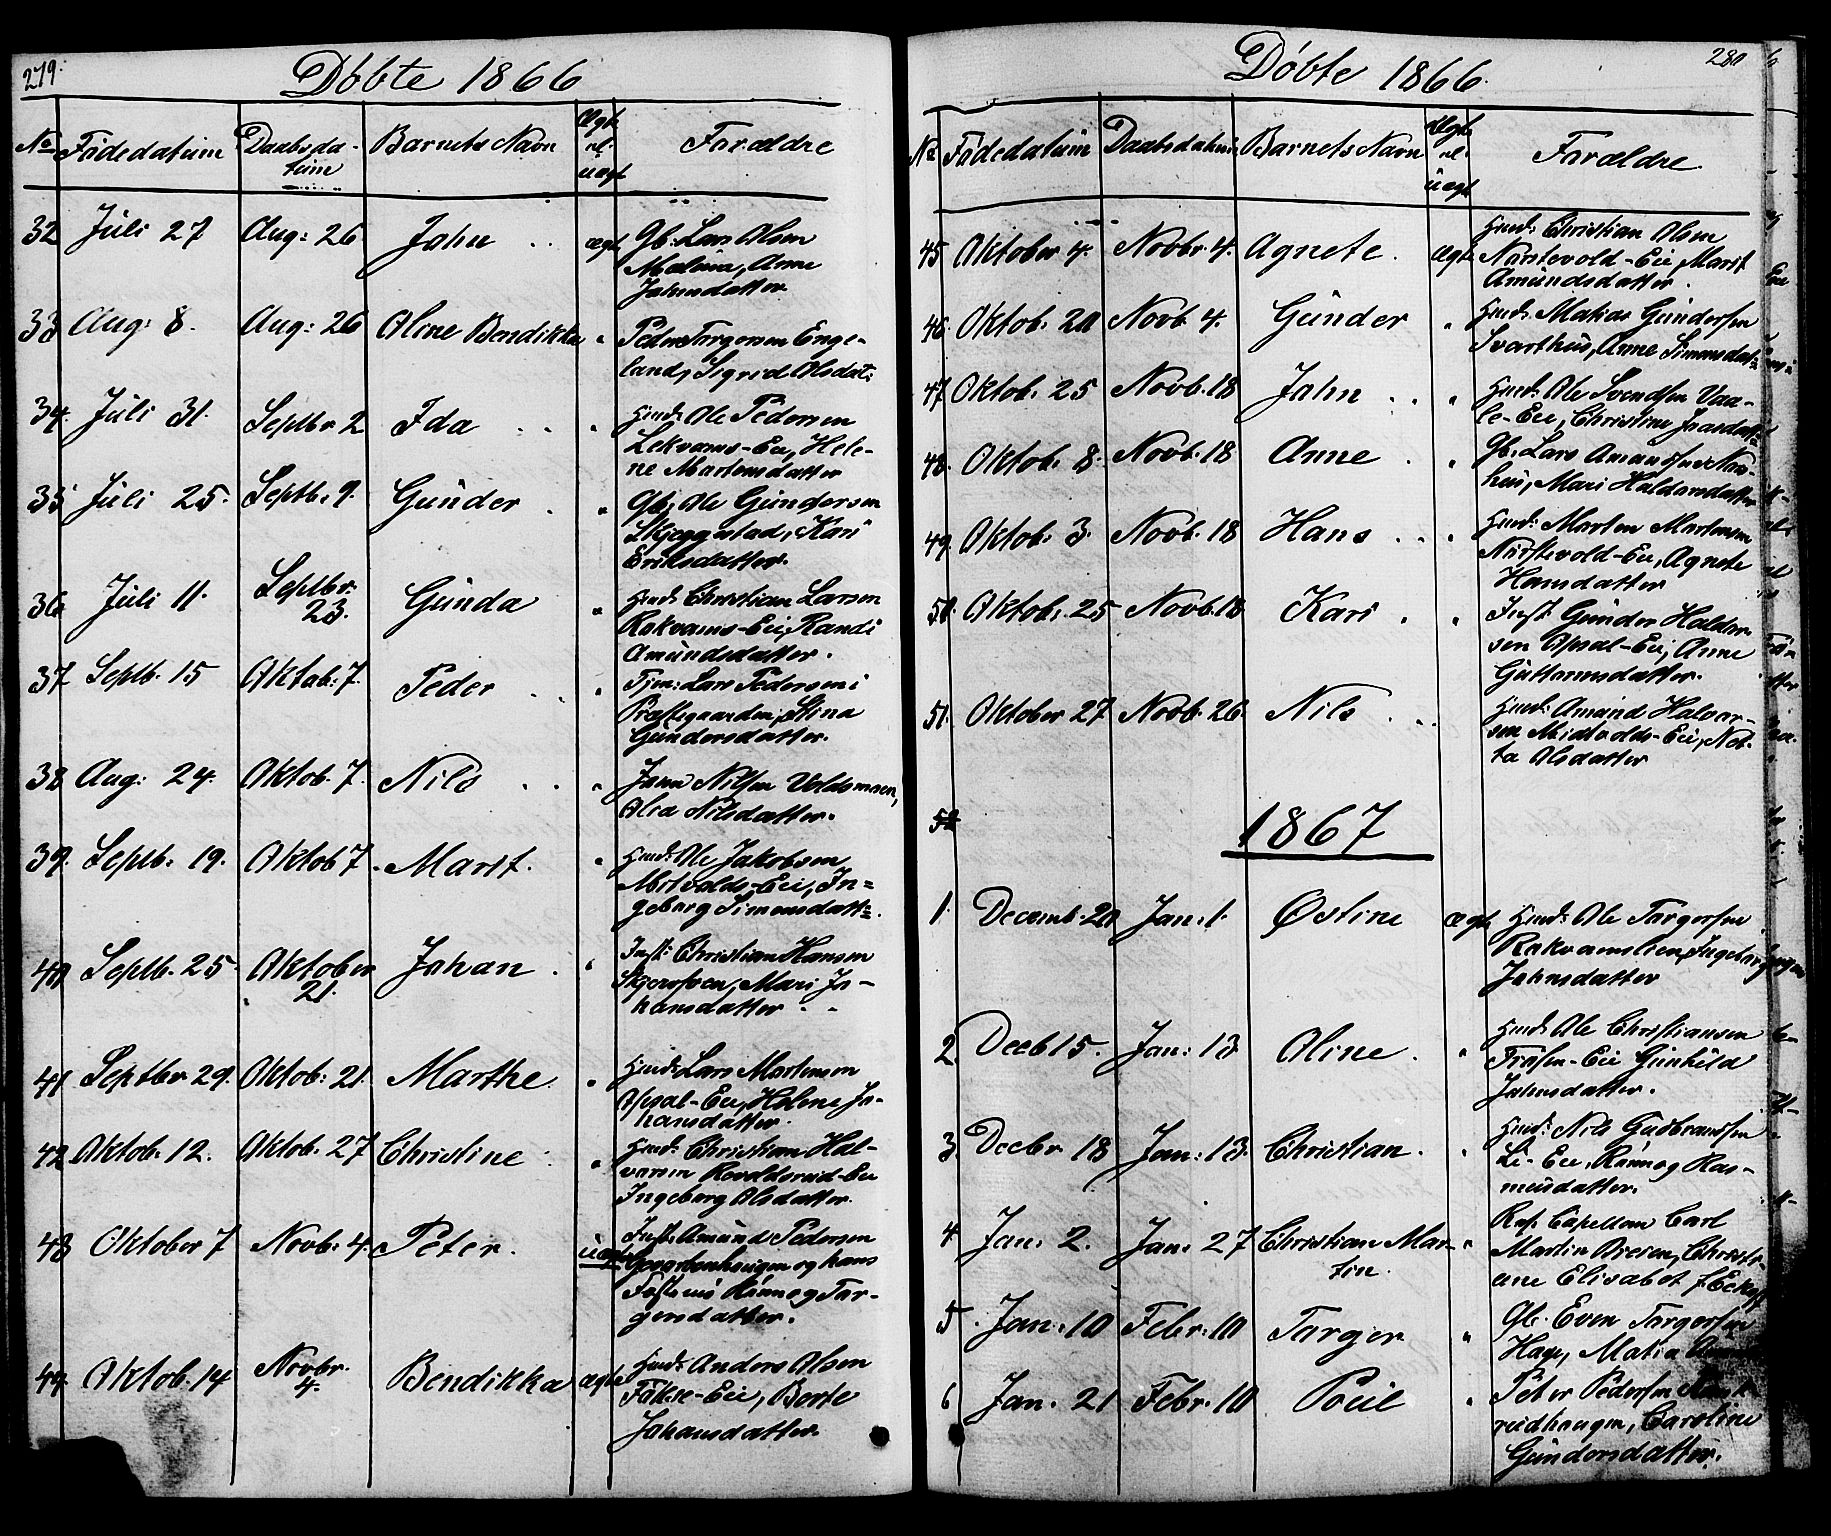 279.
Döbte 1866
No Födedatum Daabsda- Barnets Navn Ægt Forældre
tum el.
uægt
32 Juli 27 Aug: 26 John ægt Gb: Lars Olsen
Anne
Johnsdatter
33 Aug: 8. Aug: 26 Oline Bendikka " Peder Torgersen Enge-
land, Sigrid Olsdat:
34. Juli 31. Septbr 2 Ida " Husm: Ole Pedersen
Lekvams-Eie, Hele-
ne Martensdatter
35 Juli 25. Septb: 9. Gunder " Gb: Ole Gundersen
Skjeggestad, Kari
Eriksdatter.
36 Juli 11. Septbr. 23. Gunda " Husm: Christian Larsen
Rokvams-Eie, Randi
Amundsdatter.
37 Septb. 15 Oktob: 7. Peder " Tjen: Lars Pedersen i
Præstegaarden, Stina
Gundersdatter.
38 Aug: 24. Oktob. 7. Nils " Nilsen Voldsmoen,
Olea Nilsdatter.
39. Septb: 19. Oktob 7. Marit. " Husm: Ole Jakobsen
Eie, In-
geborg Simensdatt:
40 Septb. 25 Oktober 21. Johan " Inst: Christian Hansen
Mari Jo-
hansdatter
41 Septbr 29. Oktob: 21. Marthe " Husm: Lars Martensen
Opsal-Eie, Helene Jo-
hansdatter.
42 Oktob. 12. Oktob. 27 Christine " Husm: Christian Hal-
vorsen Eie
Ingeborg Olsdatter.
43 Oktober 7 Novb: 4. Peter. uægt Inst: Amund Pedersen
og hans
Rönnog Tor-
gersdatter.
44. Oktob. 14 Novbr. 4. Bendikka ægte Husm: Anders Olsen
Eie, Berte
Johansdatter.
280
Döbte 1866.
No Födedatum Daabsdatum Barnets Navn Ægt Forældre
el.
uægt
45 Oktober 4. Novbr 4. Agnete. ægt Husm: Christian Olsen
Eie, Marit
Amundsdatter.
46. Oktob: 20 Novb 4. Gunder " Husm: Matias Gundersen
Svarthus, Anne Simensdat:
47 Oktob. 25 Novb. 18 John " Husm: Ole Svendsen Vaa-
le-Eie, Christine
48. Oktob: 8. Novb. 18 Anne " Gb: Lars
hus, Mari Haldorsdatter
49. Oktob: 3. Novb. 18 Hans " Husm: Marten Martensen
Eie, Agnete
Hansdatter
50. Oktob: 25 Novb. 18 Kari " Inst Gunder Haldor-
sen Opsal-Eie, Anne
Guttormsdatter.
51. Oktober 27 Novb. 26. Nils Husm: Amund Halvor-
sen Eie,
Olsdatter
52
1867
1. Decemb. 20 Jan: 1. Østine ægt Husm: Ole Torgersen
Rokvamslien, Ingeborg
Johnsdatter
2. Decb 15. Jan: 13 Oline. " Husm: Ole Christiansen
Eie Gunhild
Johnsdatter.
3. Decbr 18 Jan: 13. Christian. " Husm: Nils Gudbrandsen
Li-Eie, Rönnog Ras-
musdatter.
4 Jan: 2. Jan: 27 Christian Mar- " Capellan Carl
tin. Martin Christi-
ane Elisabet f. Eckhoff
5. Jan: 10 Febr: 10 Torger " Gb. Even Torgersen
Hage, Matia
6 Jan. 21 Febr. 10 Poul " Peter Pedersen
Caroline
Gundersdatter.